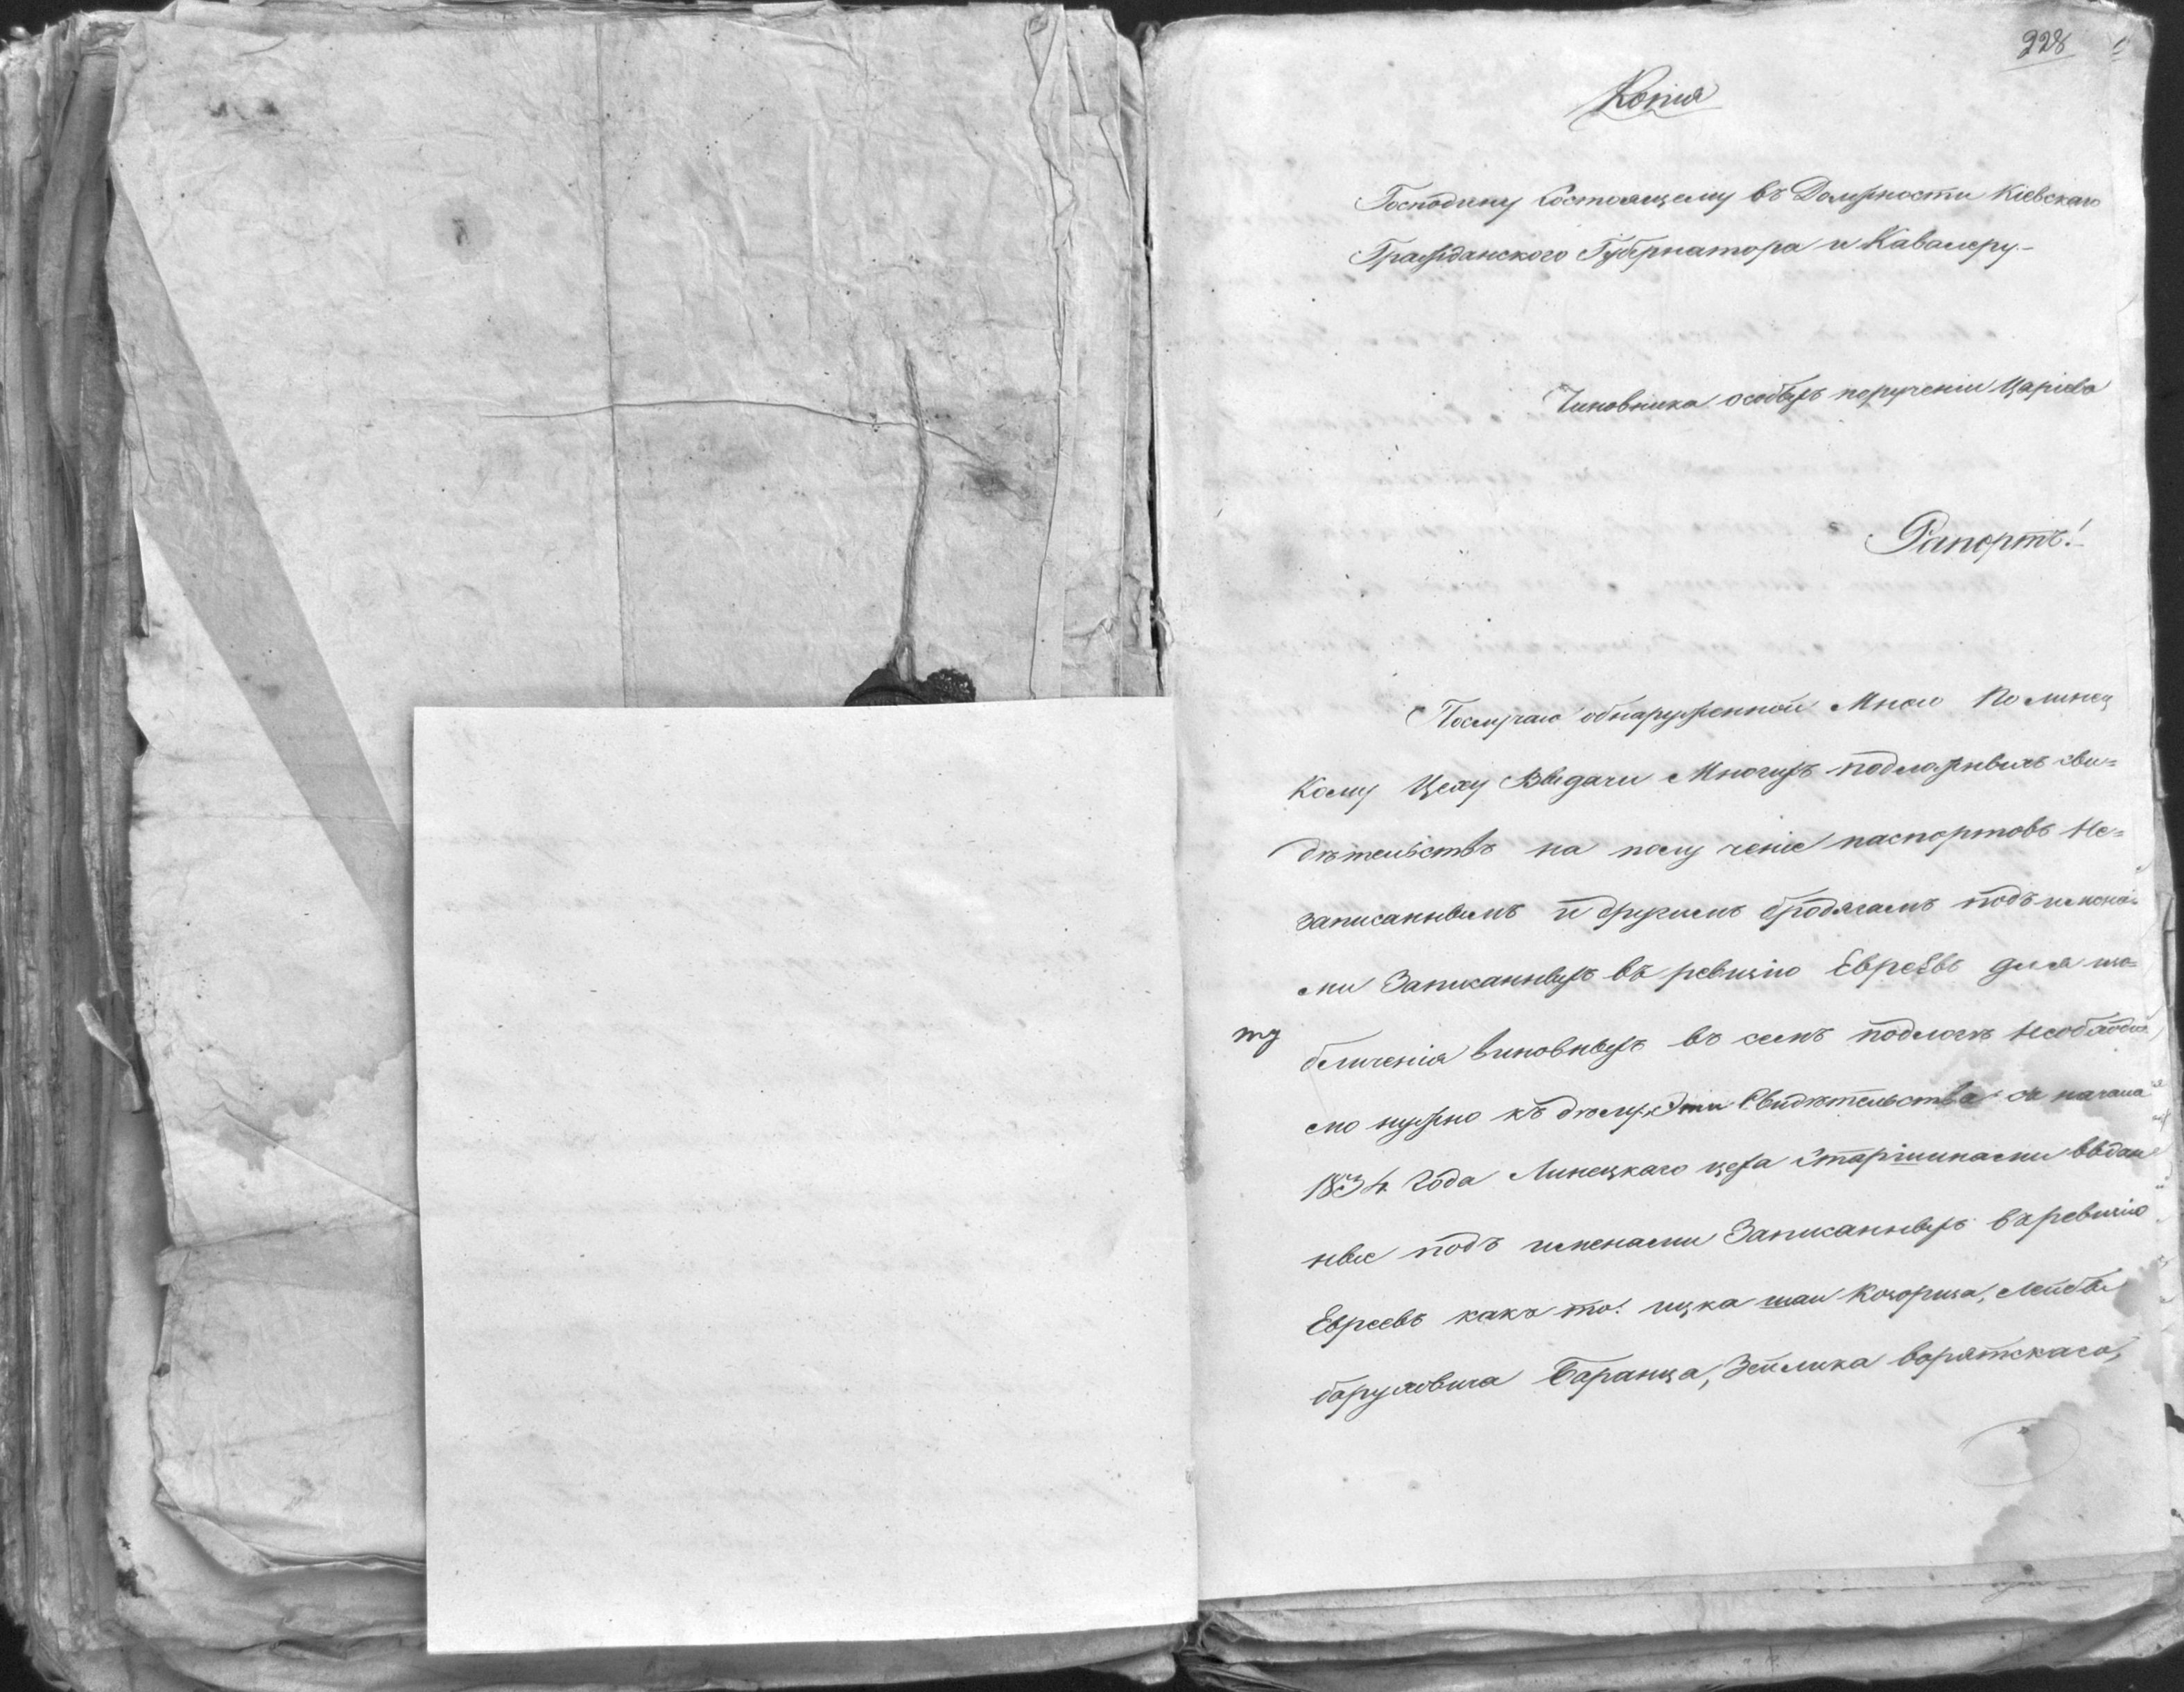 228
Копия
Господину Состоящему въ Должности Кіевскаго
Гражданского Губернатора и Кавалеру.-
Чиновника особыхъ порученіи Царіова
Рапортъ!
Послучаю обнаруженной Мною По линец
кому Цеху Выдачи Многихъ подложныхъ сви=
дѣтельствъ на полученіе паспортовъ Не=
записаннымъ и другимъ бродягамъ подъ имена=
ми Записанныхъ въ ревизію Евреевъ для изо=
бличенія виновныхъ въ семъ подлогѣ Необходи
мо нужно къ дѣлу Эти Свидѣтельства съ начала
1834 Года Линецкаго цеха Старшинами выдан
ные подъ именами Записанныхъ въ ревизію
Евреевъ какъ то: ицка Лейбы
баруховича Баранца, Зейлика